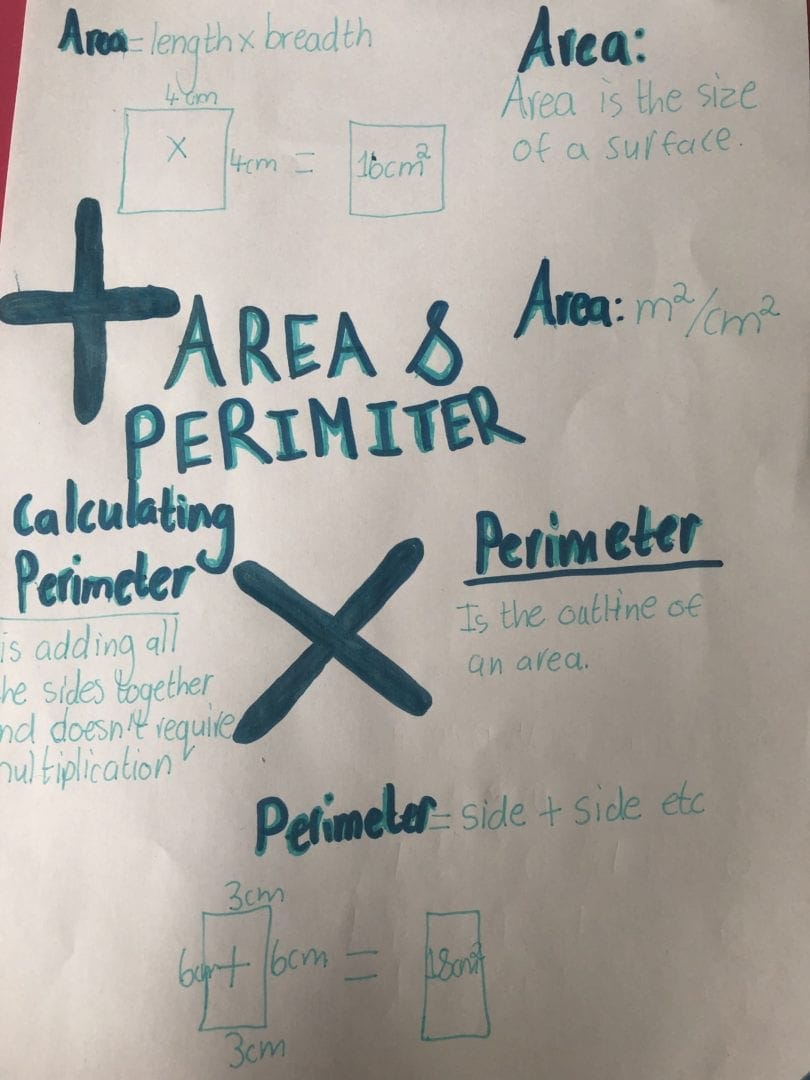 Area = length x breadth
4cm
X
4cm =
16cm²
Area:
Area is the size
of a surface.
Area: m²/cm²
+
AREA &
PERIMITER
Calculating
Perimeter
is adding all
he sides together
nd doesn't require
ultiplication
X
Perimeter
Is the outline of
an area.
Perimeter = side + side etc
3cm
6cm + 6cm = 18cm²
3cm